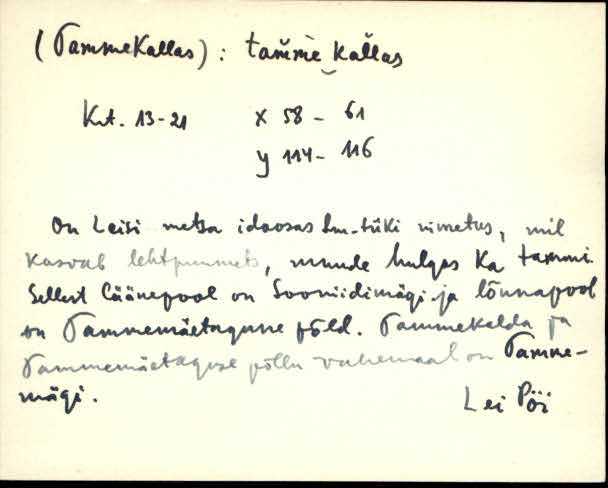 (TammeKallas) : tam̆me‿kal̆las
Krt. 13-21 x 58 - 61
y 114 - 116
On Leisi metsa idaosas lm-tüki nimetus, mil
kasvab lehtpuumets, muude hulgas ka tammi.
Sellest läänepool on Sooniidimägi ja lõunapool
on Tammemäetaguse põld. Tammekalda ja
Tammemäetaguse põllu vahemaal on Tamme-
mägi.
Lei Pöi